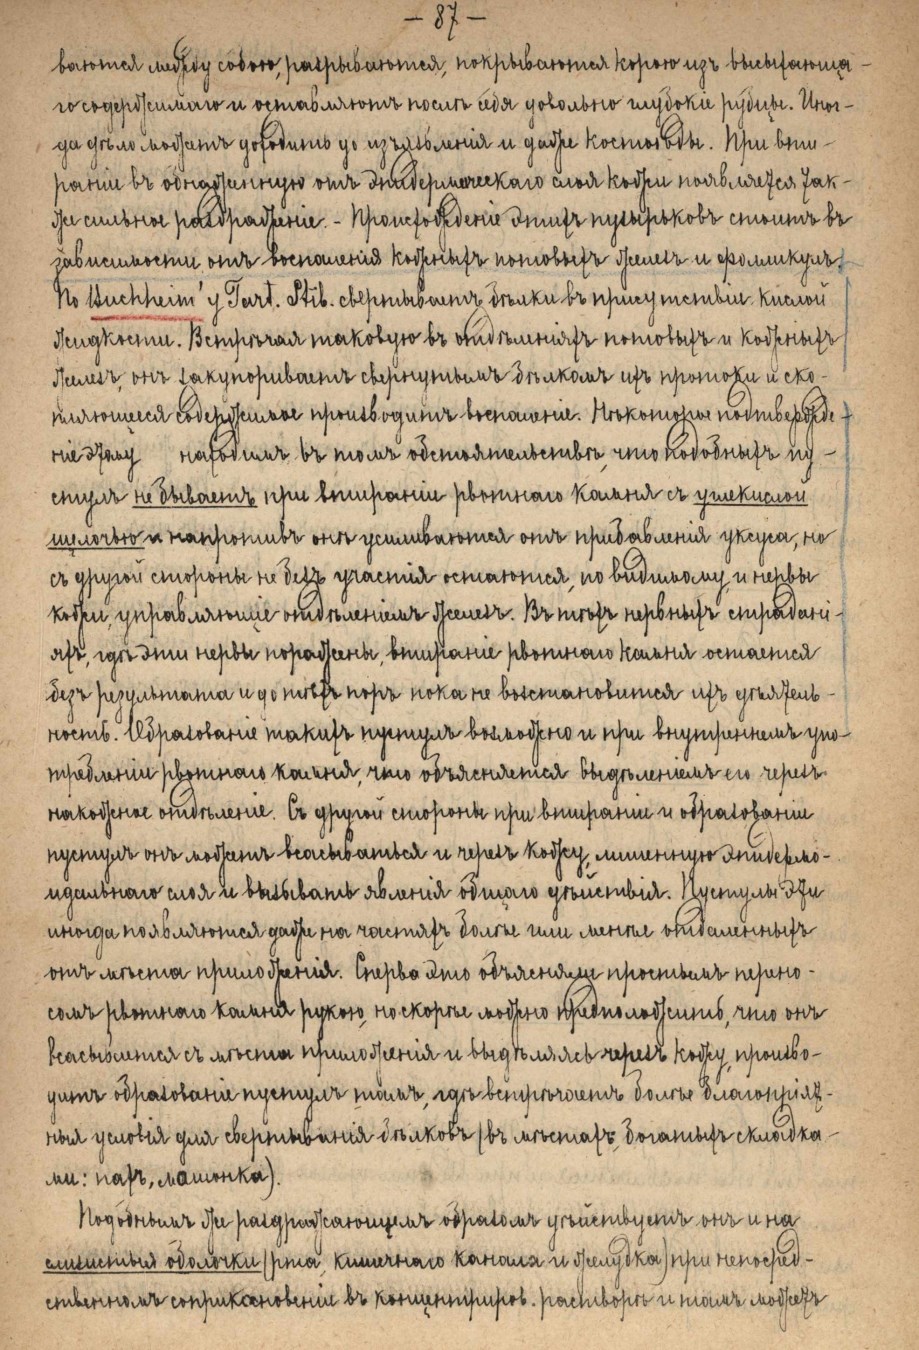 — 87 —
ваются между собою, разрываются, покрываются корою изъ высыхающа-
го содержимаго и оставляютъ послѣ себя довольно глубокіе рубцы. Иног-
да дѣло можетъ доходить до изъязвленія и даже костоѣды. При вти-
раніи въ обнаженную отъ эпидермическаго слоя кожи появляется так-
же сильное раздраженіе. - Происхожденіе этихъ пузырьковъ стоитъ въ
зависимости отъ воспаленія кожныхъ потовыхъ железъ и фолликулъ.
По Buchheim'у Tart. Stib. свертываетъ бѣлки въ присутствіи кислой
жидкости. Встрѣчая таковую въ отдѣленіяхъ потовыхъ и кожныхъ
железъ, онъ закупориваетъ свернутымъ бѣлкомъ ихъ протоки и ско-
пляющееся содержимое производитъ воспаленіе. Нѣкоторое подтвержде-
ніе этому находимъ въ томъ обстоятельствѣ, что подобныхъ пу-
стулъ не бываетъ при втираніи рвотнаго камня съ углекислой
щелочью и напротивъ онѣ усиливаются отъ прибавленія уксуса, но
съ другой стороны не безъ участія остаются, по видимому, и нервы
кожи, управляющіе отдѣленіемъ железъ. Въ тѣхъ нервныхъ страдані-
яхъ, гдѣ эти нервы поражены, втираніе рвотнаго камня остается
безъ результата и до тѣхъ поръ пока не возстановится ихъ дѣятель-
ность. Образованіе такихъ пустулъ возможно и при внутреннемъ упо-
требленіи рвотнаго камня, что объясняется выдѣленіемъ его черезъ
накожное отдѣленіе. Съ другой стороны при втираніи и образованіи
пустулъ онъ можетъ всасываться и черезъ кожу, лишенную эпидермо-
идальнаго слоя и вызывать явленія общаго дѣйствія. Пустулы эти
иногда появляются даже на частяхъ болѣе или менѣе отдаленныхъ
отъ мѣста приложенія. Сперва это объясняли простымъ перено-
сомъ рвотнаго камня рукою, но скорѣе можно предположить, что онъ
всасывается съ мѣста приложенія и выдѣляясь черезъ кожу, произво-
дитъ образованіе пустулъ тамъ, гдѣ встрѣчаетъ болѣе благопріят-
ныя условія для свертыванія бѣлковъ (въ мѣстахъ, богатыхъ складка-
ми: пахъ, мошонка).
Подобнымъ же раздражающимъ образомъ дѣйствуетъ онъ и на
слизистыя оболочки (рта, кишечнаго канала и желудка) при непосред-
ственномъ соприкосновеніи въ концентриров. растворѣ и тамъ можетъ